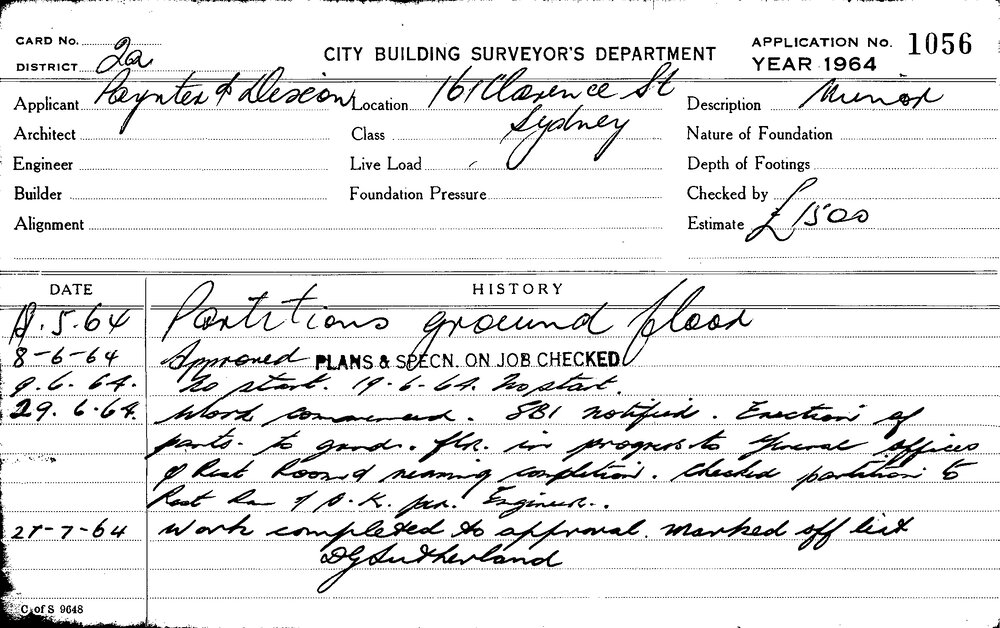 CARD No.
DISTRICT 2a
CITY BUILDING SURVEYOR'S DEPARTMENT
APPLICATION No. 1056
YEAR 1964
Applicant Paynter & Dixon Location 161 Clarence St Description Minor
Sydney
Architect Class Nature of Foundation
Engineer Live Load Depth of Footings
Builder Foundation Pressure Checked by
Alignment Estimate £1500
DATE HISTORY
.5.64 Partitions ground floor
8-6-64 Approved PLANS & SPECN. ON JOB CHECKED
9.6.64. No start. 19-6-64. No start.
29.6.64. Work commenced. SBI notified. Erection of
parts. to grnd. flr. in progress to General offices
& Rest Room & nearing completion. Checked partition to
Rest Rm O.K. Engineer.
27-7-64 Work completed to approval. Marked off list
DG Sutherland
C. of S 9648